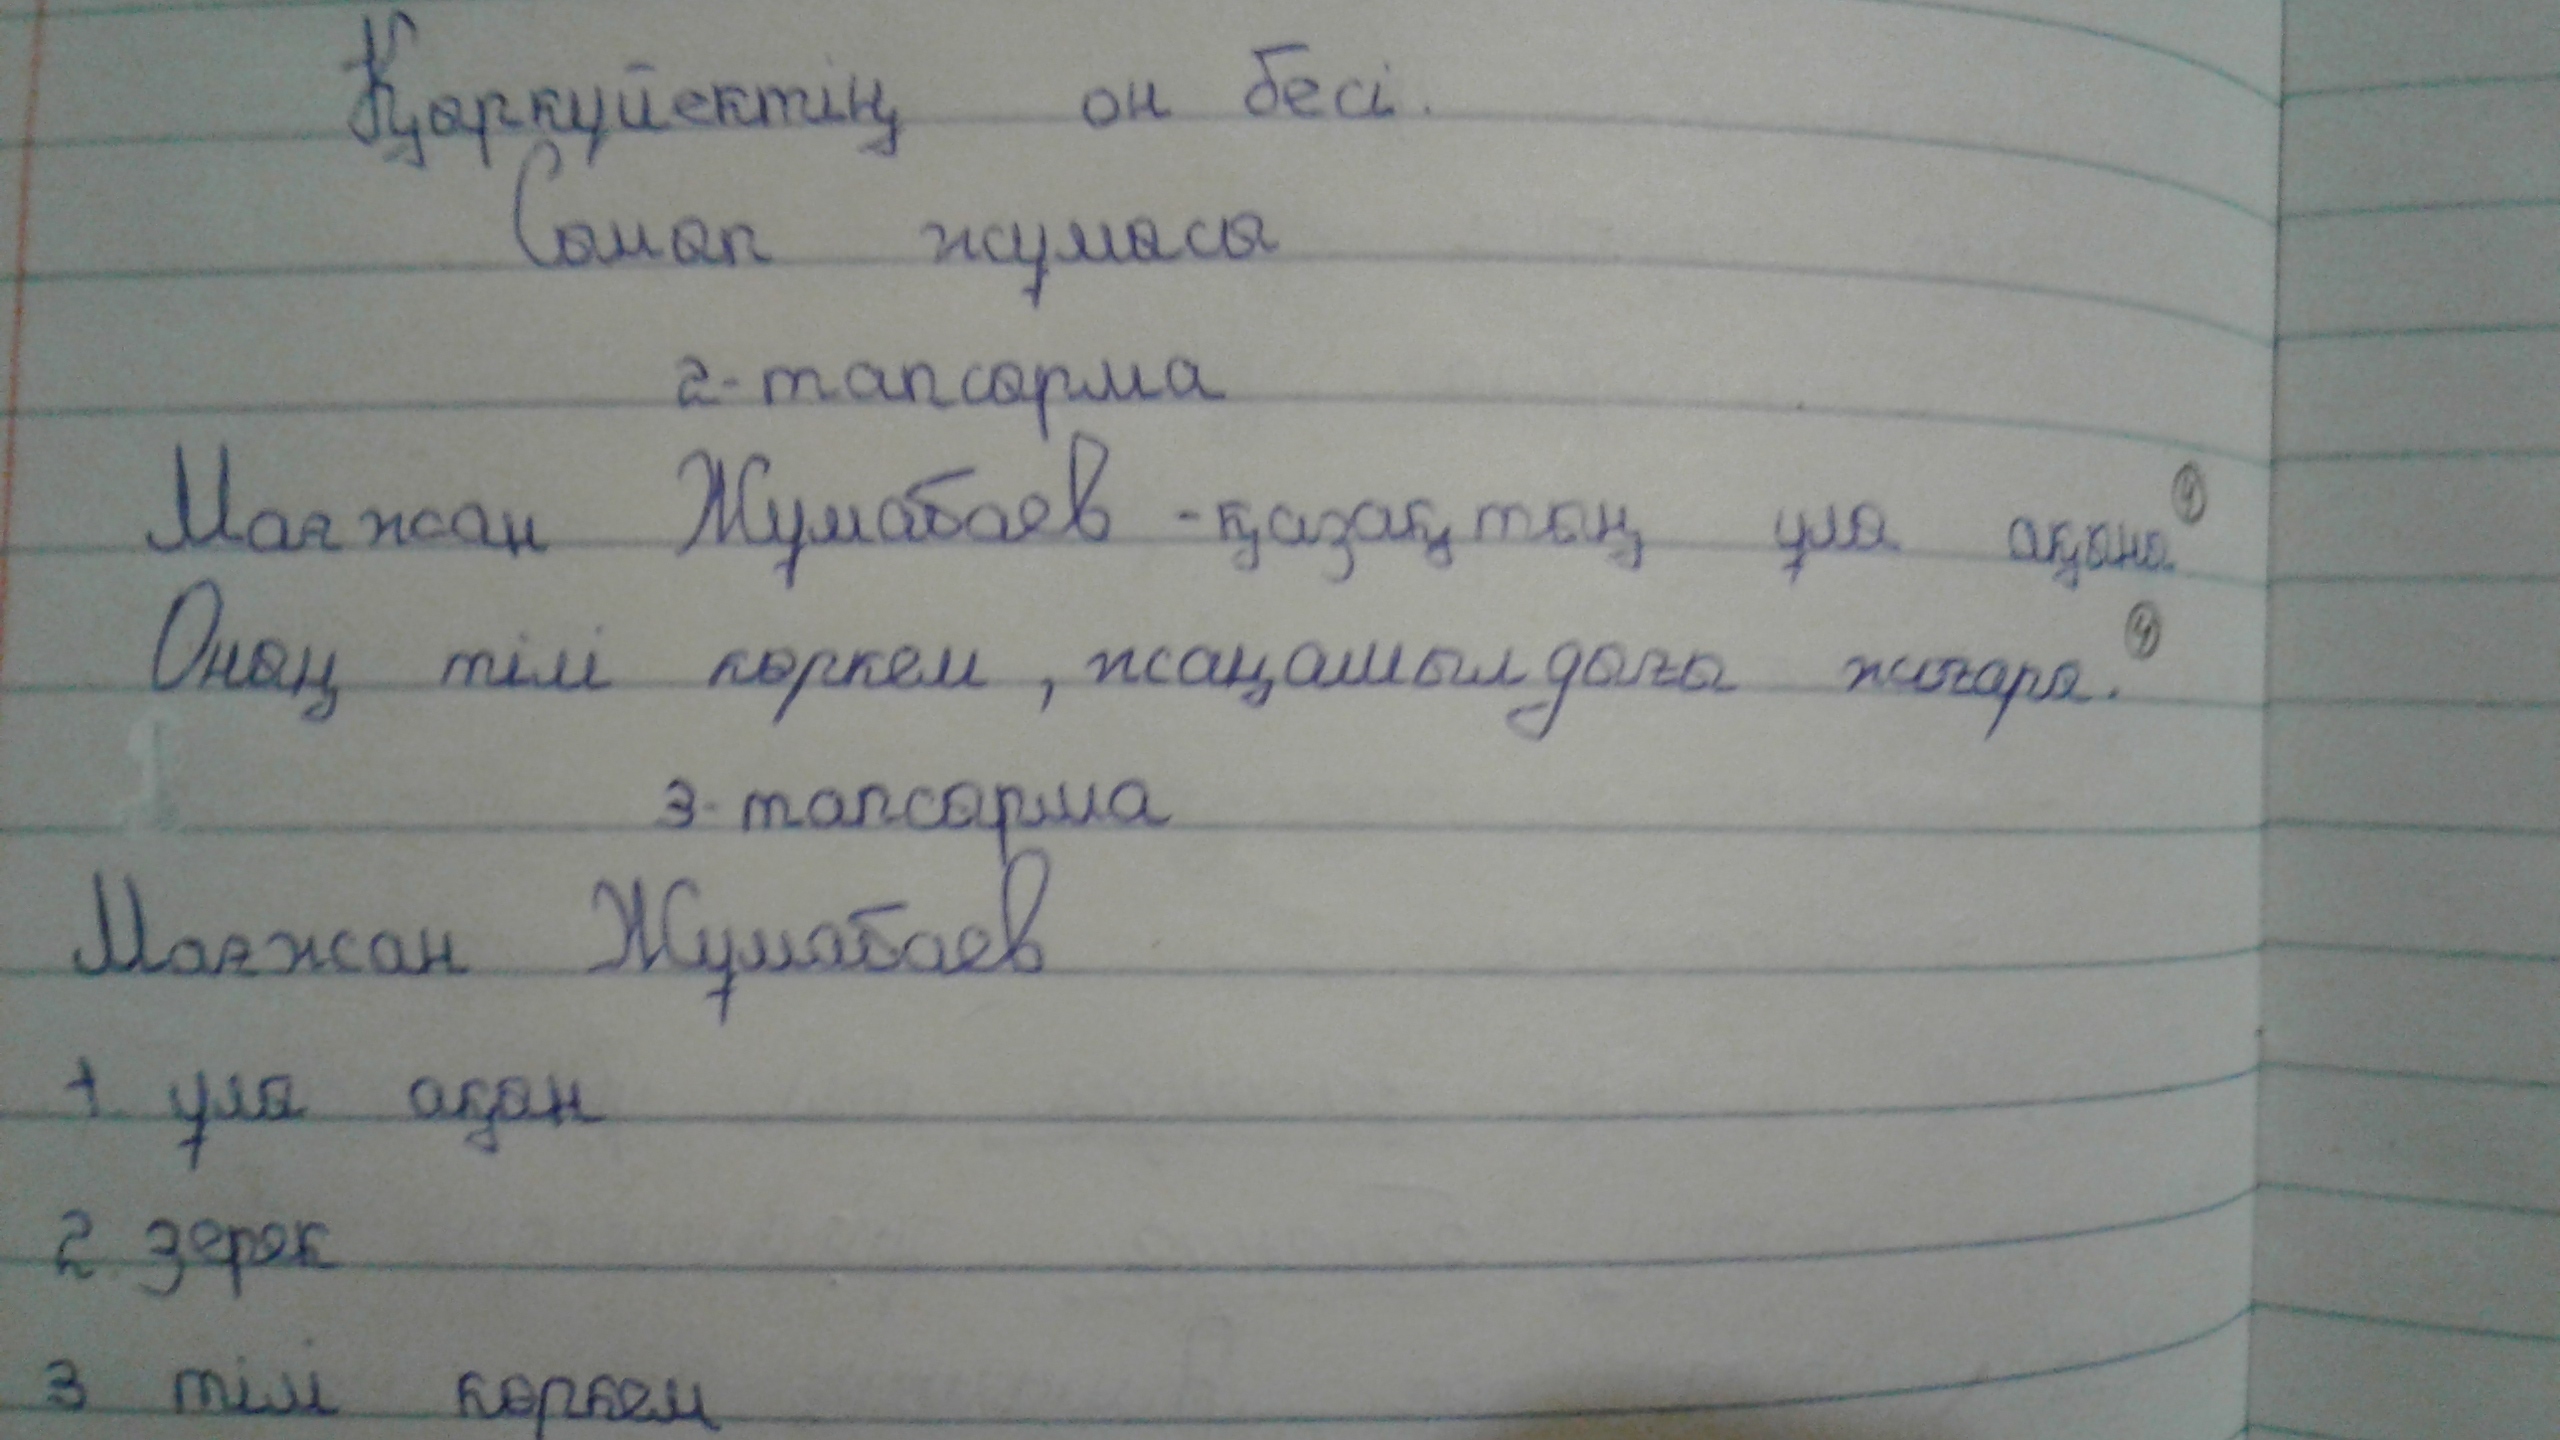 Қыркүйектің он бесі.
Сынып жұмысы
2-тапсырма
Мағжан Жұмабаев -қазақтың ұлы ақыны ④
Оның тілі көркем, жаңашылдығы жоғары. ④
3-тапсырма
Мағжан Жұмабаев
1. ұлы ақын
2. зерек
3 тілі көркем